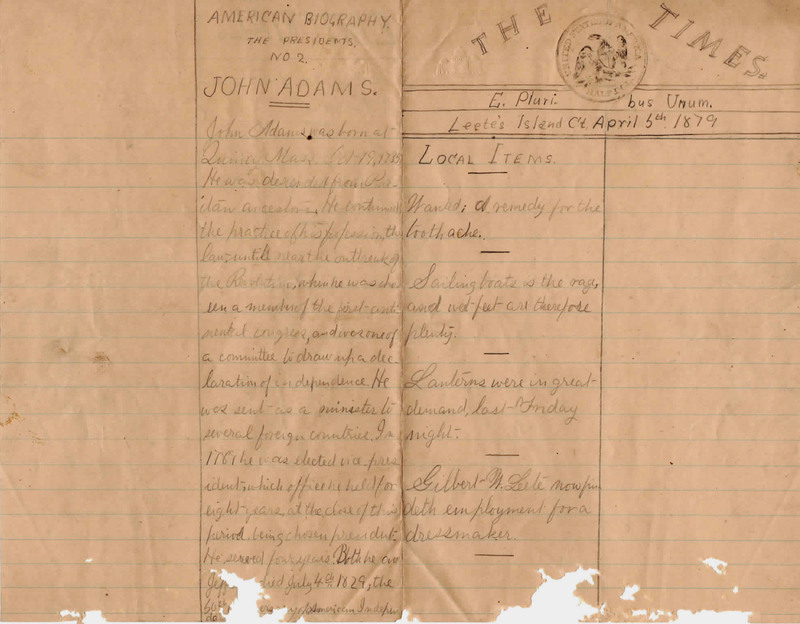 AMERICAN BIOGRAPHY.
THE PRESIDENTS.
NO 2.
JOHN ADAMS.
John Adams was born at
Quincy Mass Oct 19, 1735
He was descended from Pur-
itan ancestors. He continued
the practice of his profession, the
law, until near the outbreak of
the Revolution, when he was cho-
sen a member of the first conti-
nental congress, and was one of
a committee to draw up a dec-
laration of independence. He
was sent as a minister to
several foreign countries. In
he was elected vice pres
ident; which office he held for
eight years, at the close of this
period, being chosen president.
He served four years. Both he and
died July 4th 1829, the
50th American Indepen
THE TIMES.
UNITED STATES OF AMERICA
HALF
E. Pluri. bus Unum.
Leete's Island Ct. April 5th 1879
LOCAL ITEMS.
Wanted; A remedy for the
toothache.
Sailing boats is the rage,
and wet feet are therefore
plenty.
Lanterns were in great
demand, last Friday
night.
Gilbert W. Leete now fin
deth employment for a
dressmaker.